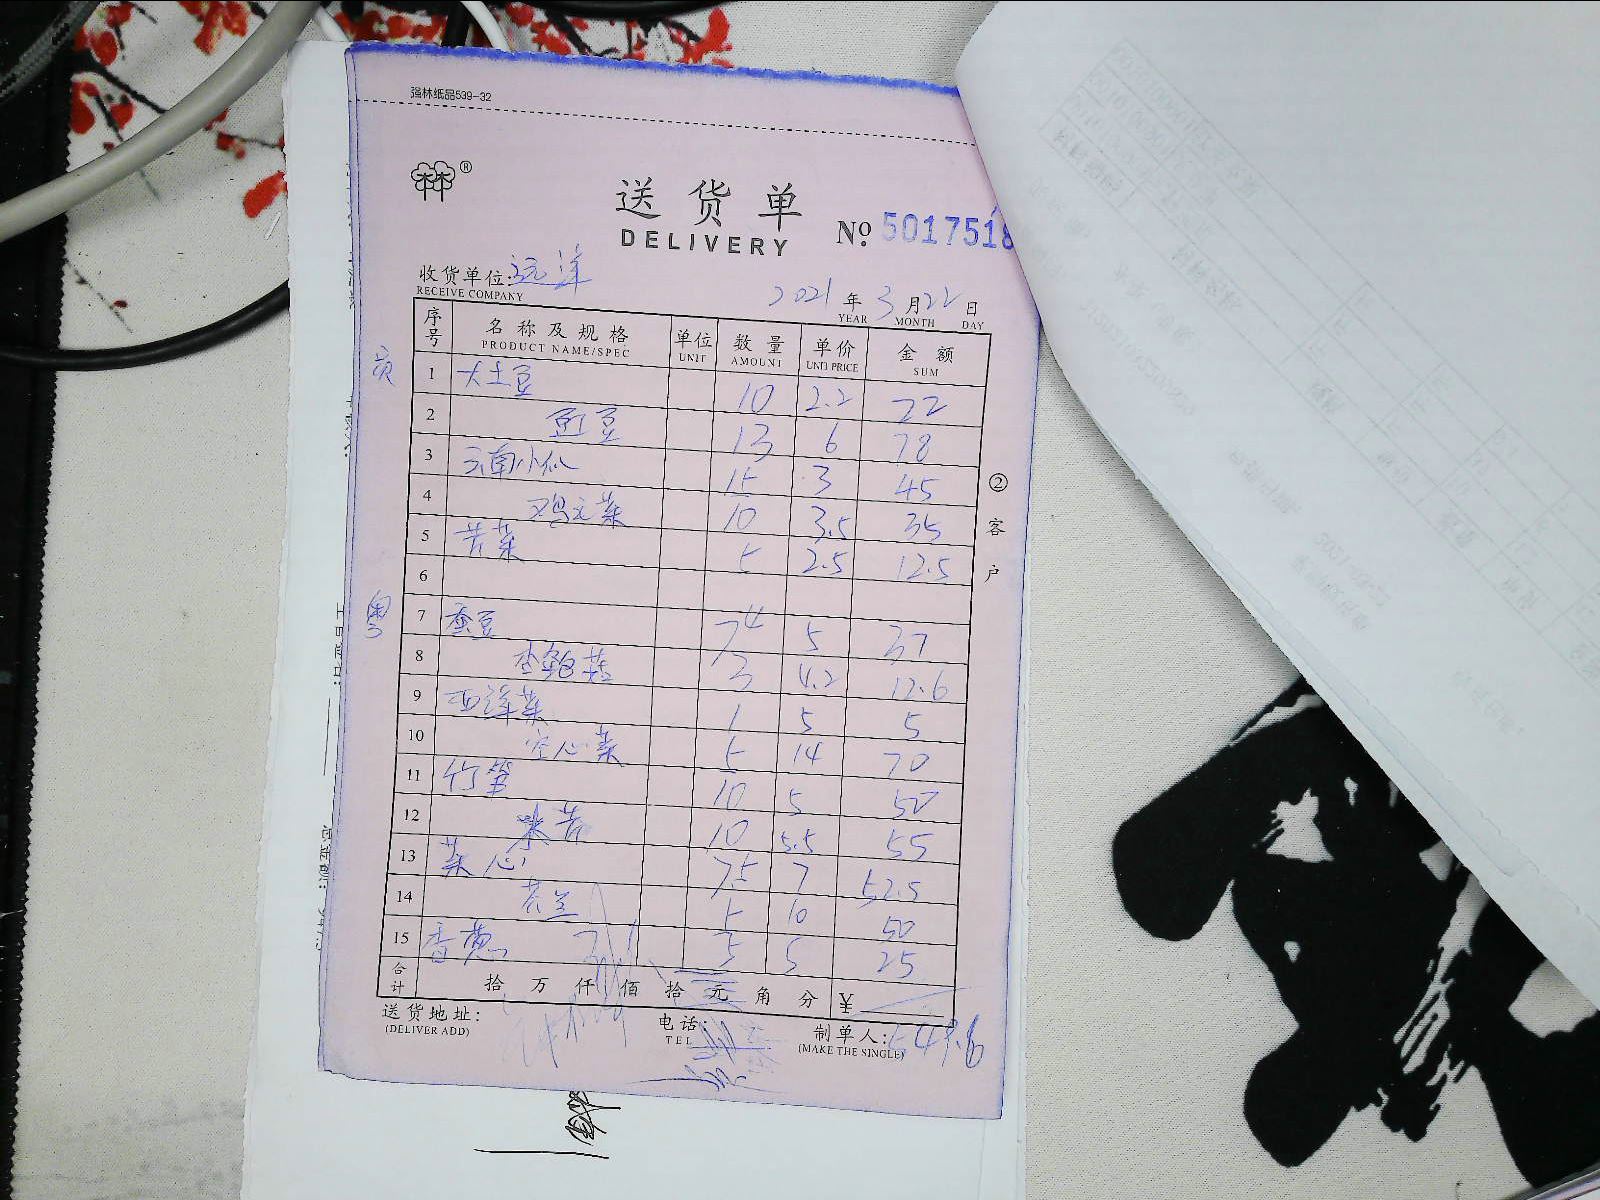 强林纸品539-32
林林®
送货单
DELIVERY
№ 5017518
收货单位:远洋
RECEIVE COMPANY
2021年3月22日
YEAR MONTH DAY
序号 名称及规格 单位 数量 单价 金额
PRODUCT NAME/SPEC UNIT AMOUNT UNIT PRICE SUM
1 大土豆 10 2.2 22
2 豇豆 13 6 78
3 云南小瓜 15 3 45
4 鸡毛菜 10 3.5 35
5 苦菜 5 2.5 12.5
6
粤
7 蚕豆 7.4 5 37
8 杏鲍菇 3 4.2 12.6
9 西洋菜 1 5 5
10 空心菜 5 14 70
11 竹笋 10 5 50
12 10 5.5 55
13 菜心 7.5 7 52.5
14 芥兰 5 10 50
15 香葱 5 5 25
合计 拾 万 仟 佰 拾 元 角 分 ¥
549.6
送货地址:
(DELIVER ADD)
电话:
TEL
制单人:
(MAKE THE SINGLE)
②客户